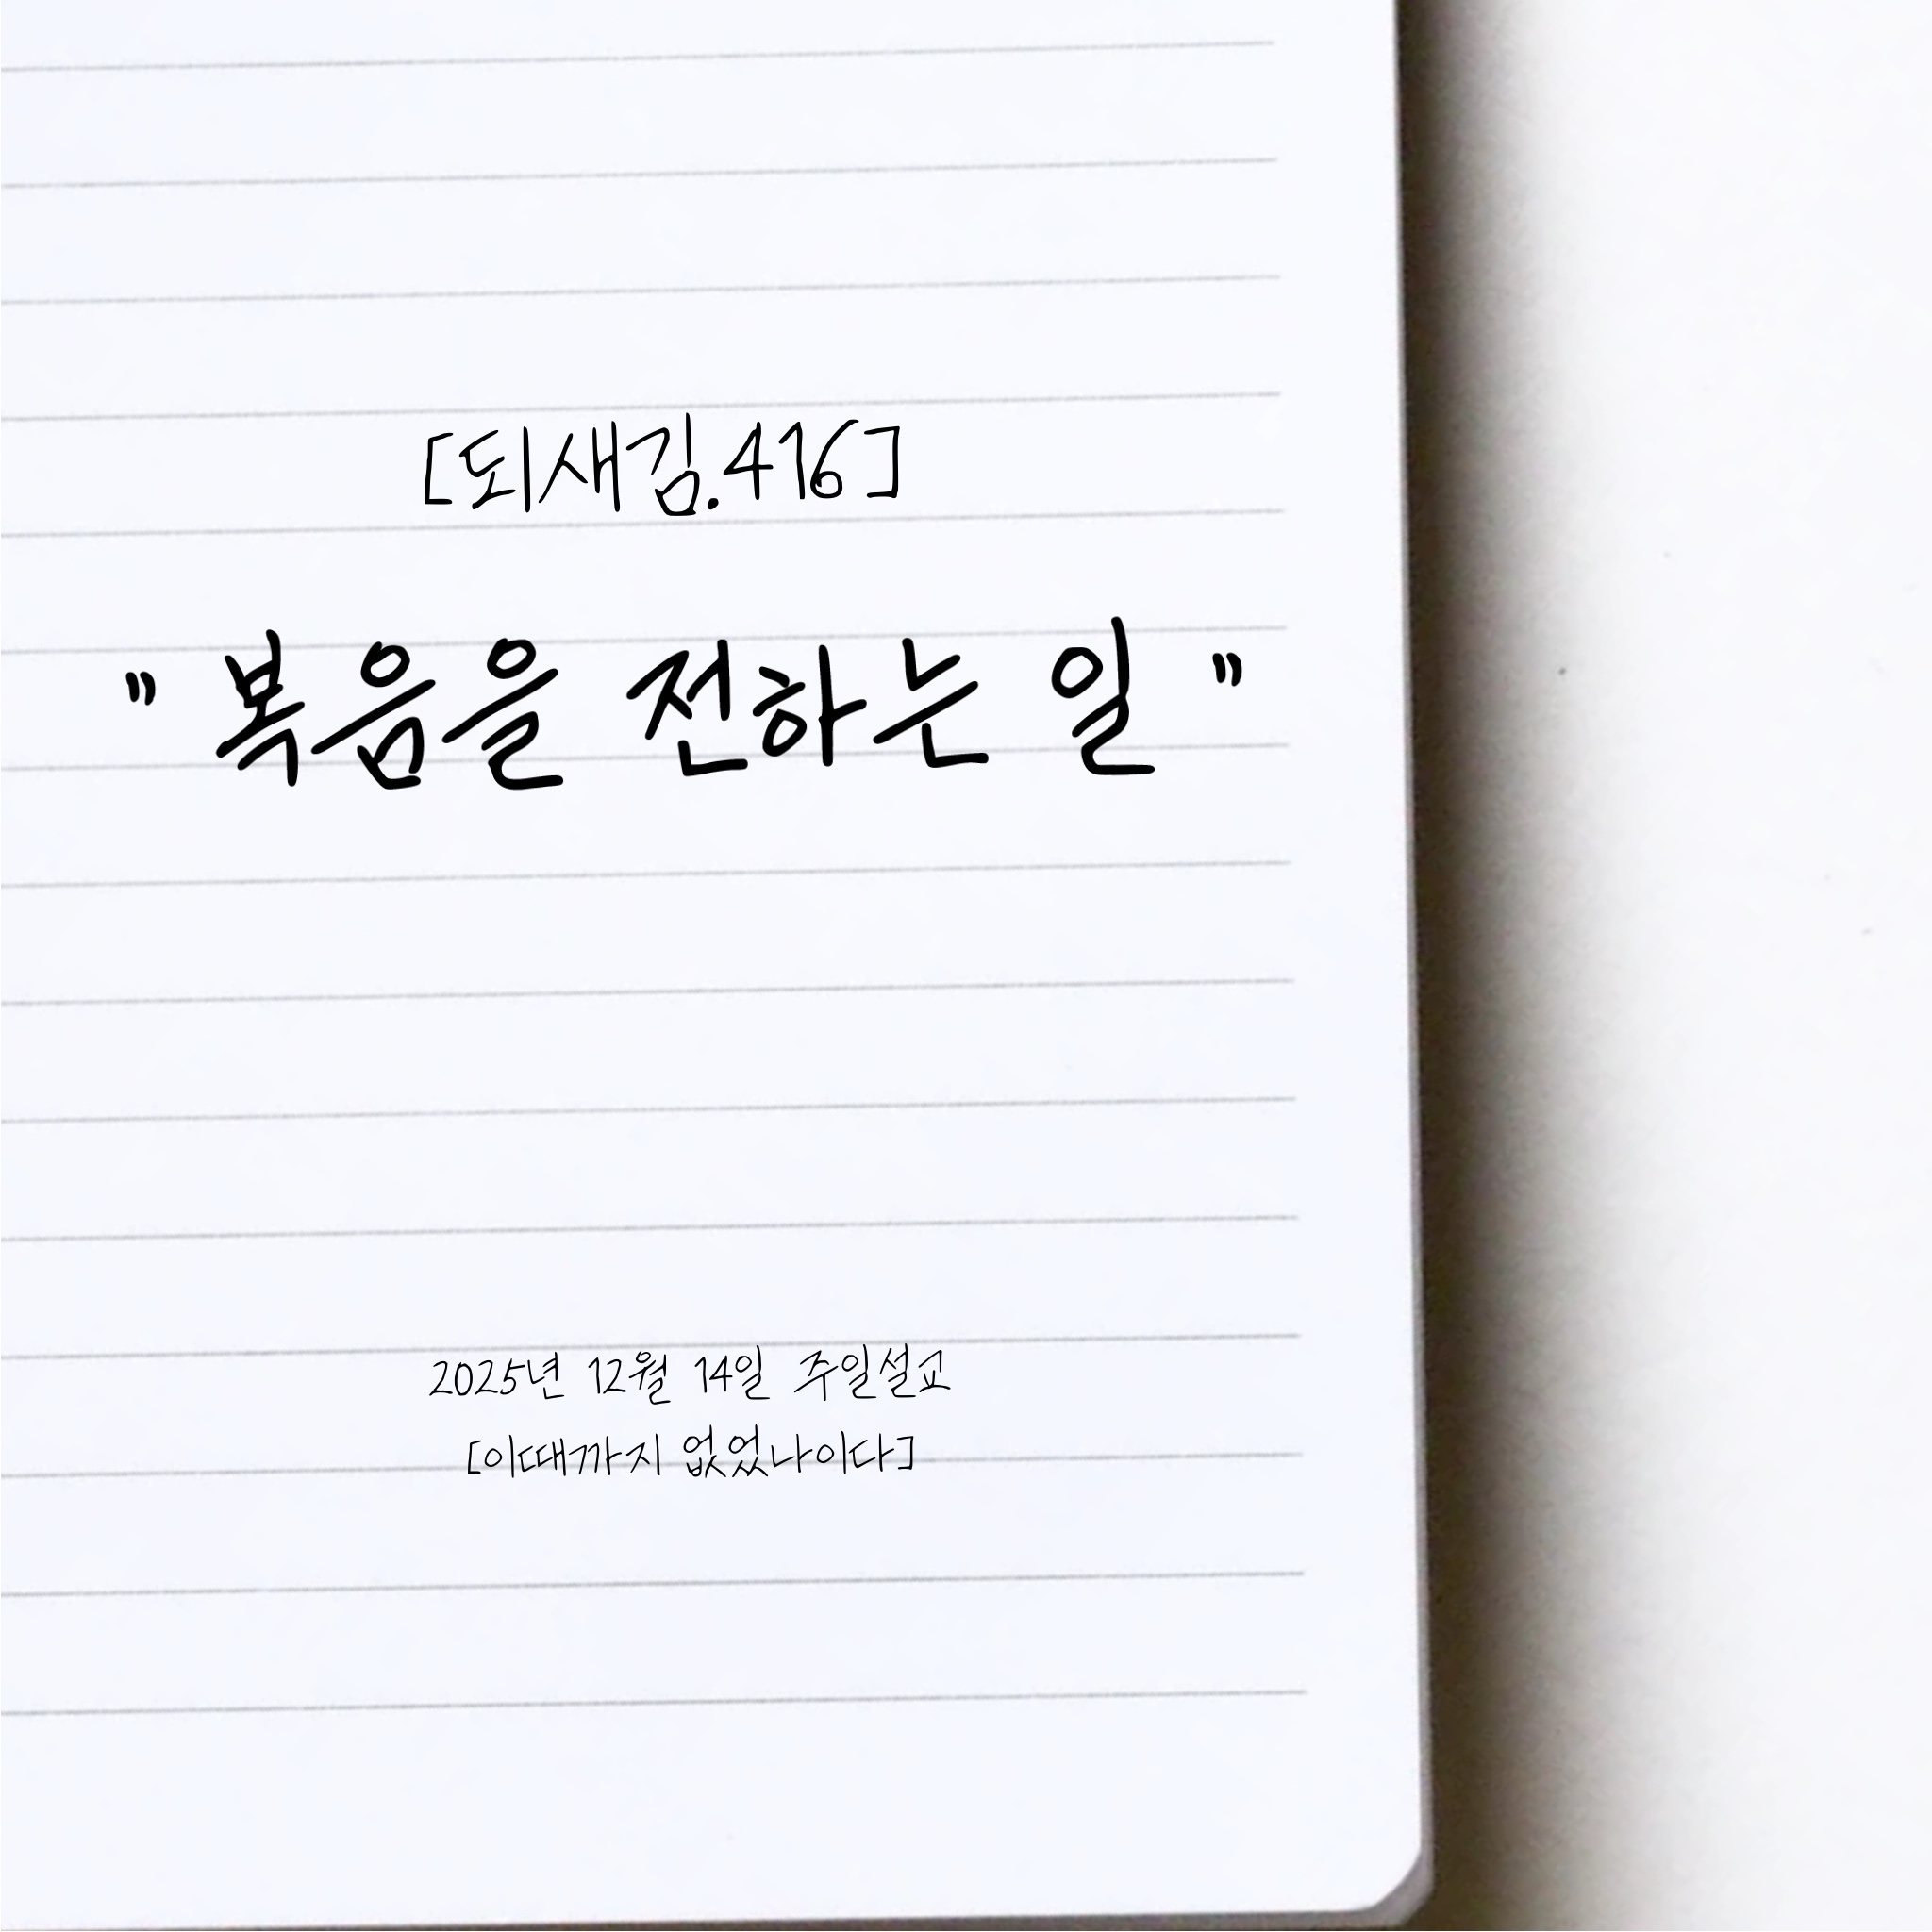 [되새김.416]
" 복음을 전하는 일 "
2025년 12월 14일 주일설교
[이때까지 없었나이다]